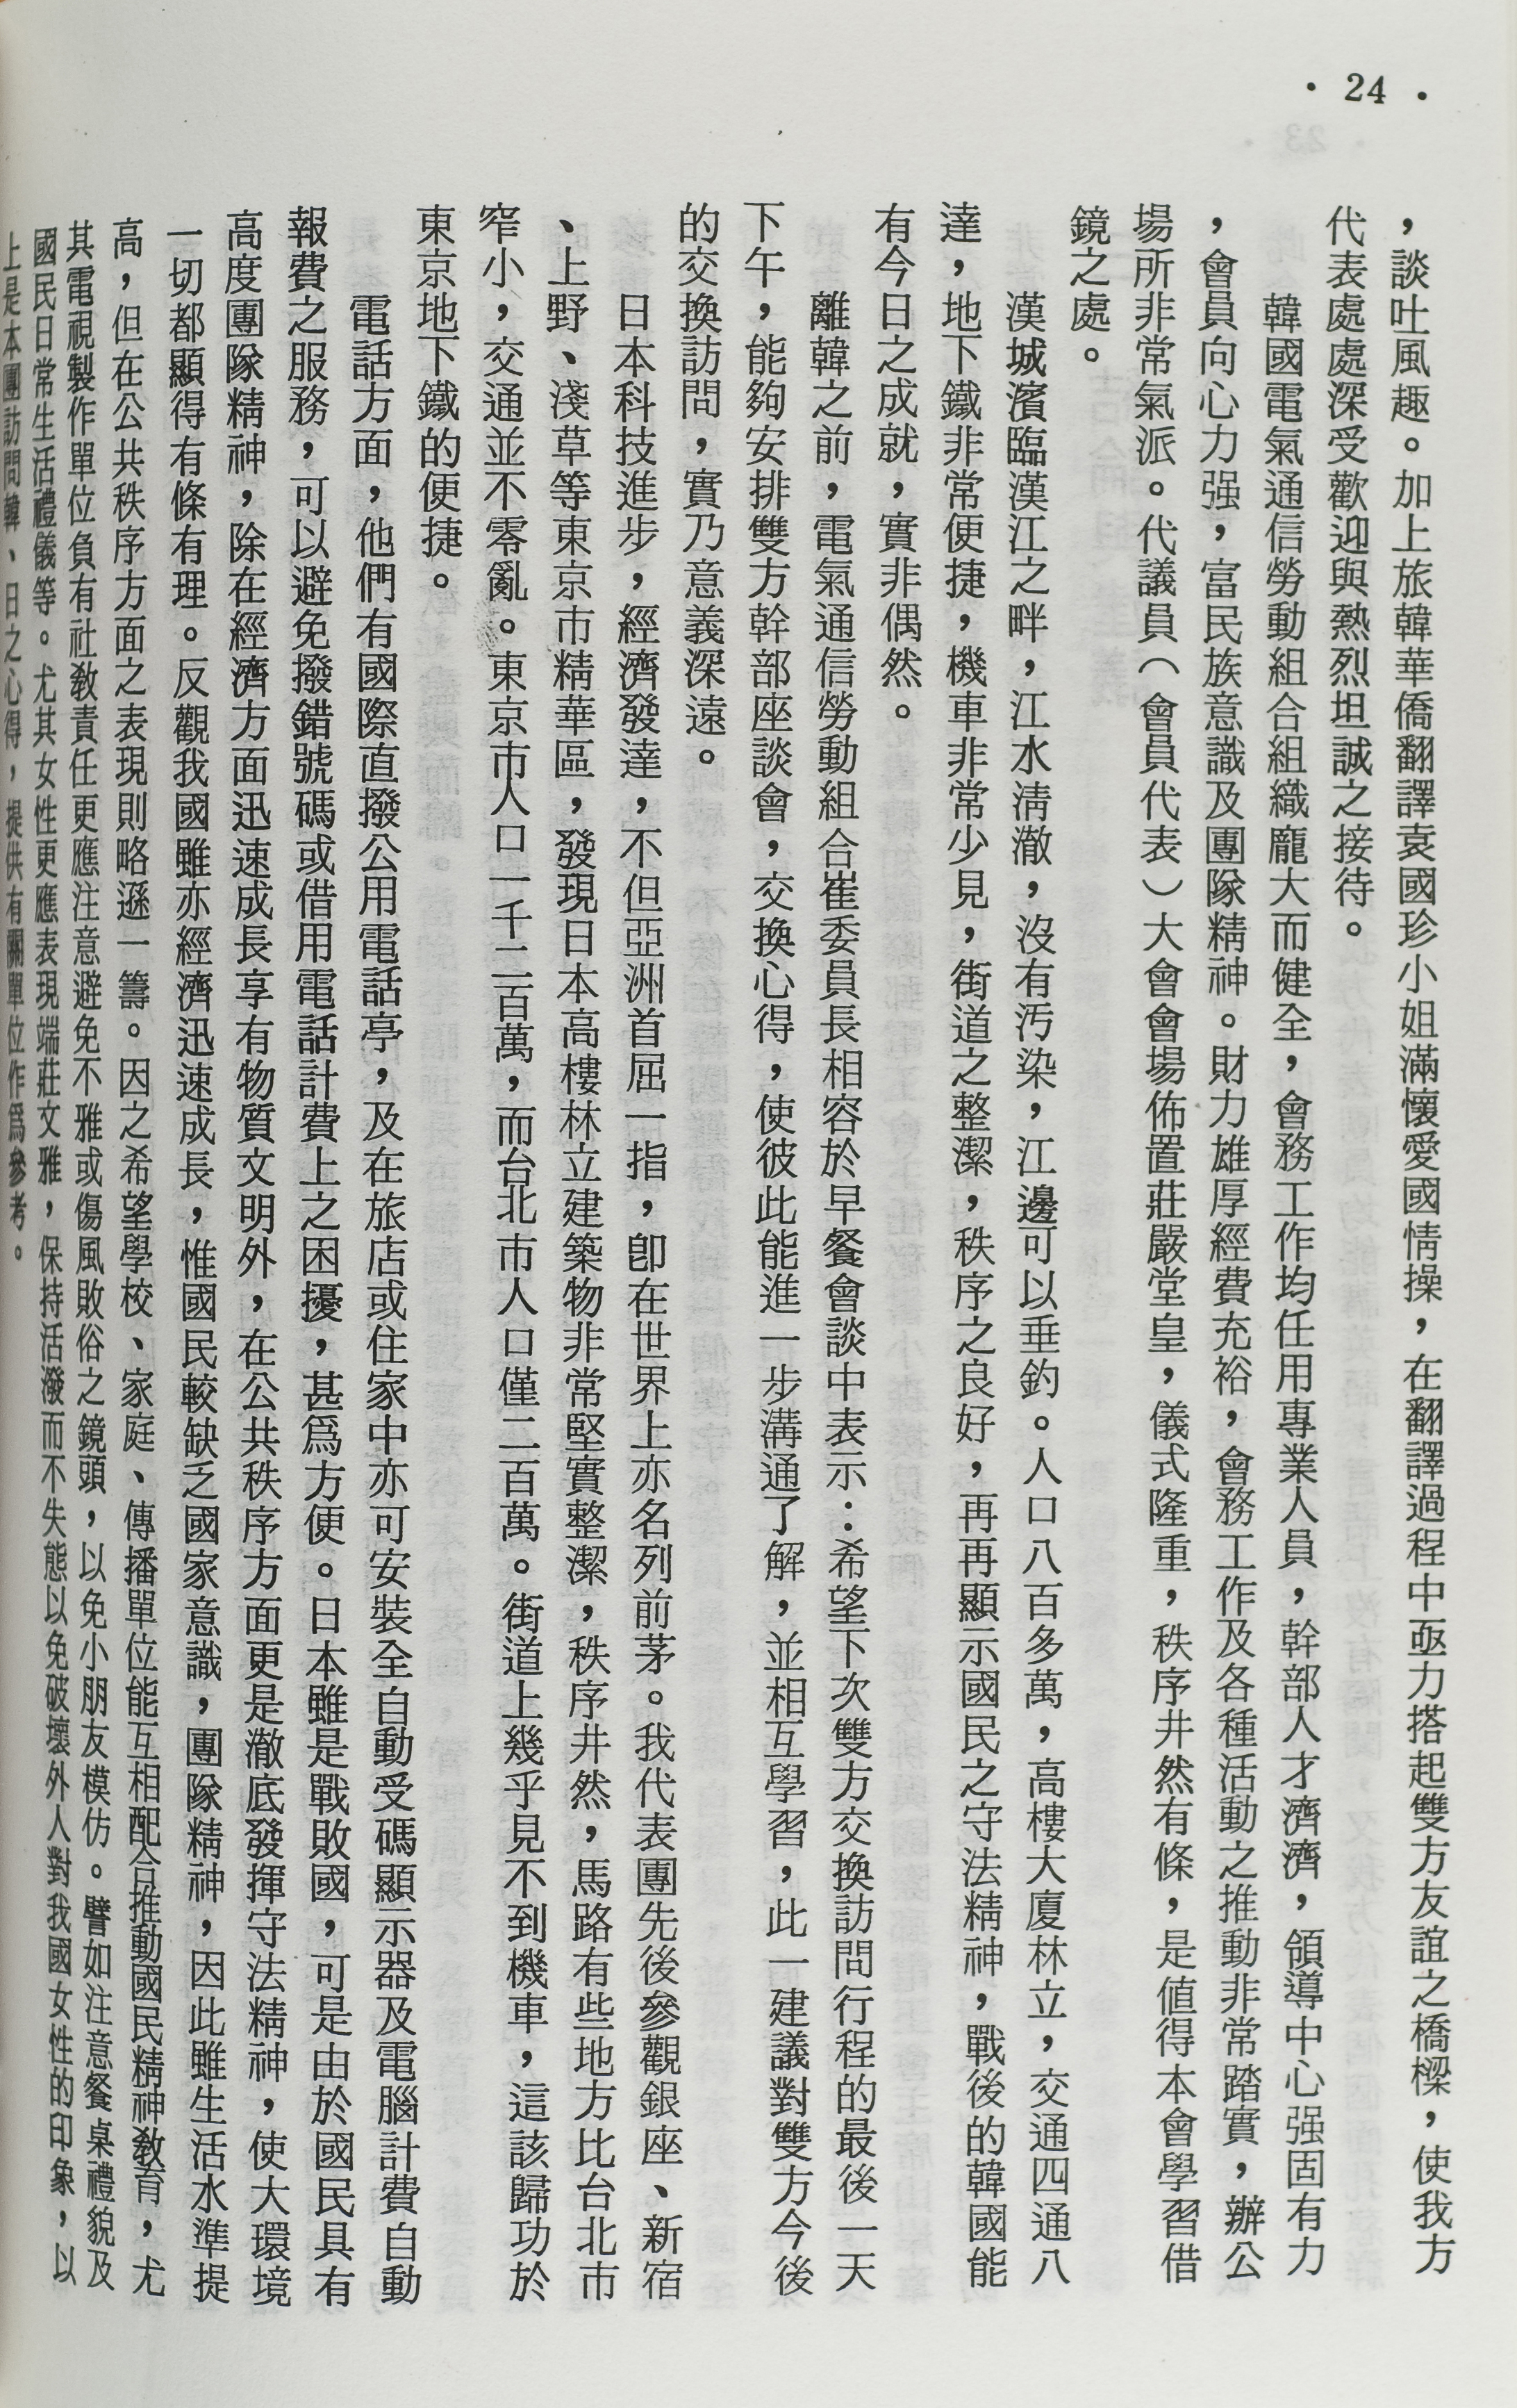 • 24 •
，談吐風趣。加上旅韓華僑翻譯袁國珍小姐滿懷愛國情操，在翻譯過程中亟力搭起雙方友誼之橋樑，使我方
代表處處深受歡迎與熱烈坦誠之接待。
韓國電氣通信勞動組合組織龐大而健全，會務工作均任用專業人員，幹部人才濟濟，領導中心强固有力
，會員向心力强，富民族意識及團隊精神。財力雄厚經費充裕，會務工作及各種活動之推動非常踏實，辦公
場所非常氣派。代議員（會員代表）大會會場佈置莊嚴堂皇，儀式隆重，秩序井然有條，是値得本會學習借
鏡之處。
漢城濱臨漢江之畔，江水淸澈，沒有污染，江邊可以垂釣。人口八百多萬，高樓大廈林立，交通四通八
達，地下鐵非常便捷，機車非常少見，街道之整潔，秩序之良好，再再顯示國民之守法精神，戰後的韓國能
有今日之成就，實非偶然。
離韓之前，電氣通信勞動組合崔委員長相容於早餐會談中表示：希望下次雙方交換訪問行程的最後一天
下午，能夠安排雙方幹部座談會，交換心得，使彼此能進一步溝通了解，並相互學習，此一建議對雙方今後
的交換訪問，實乃意義深遠。
日本科技進步，經濟發達，不但亞洲首屈一指，卽在世界上亦名列前茅。我代表團先後參觀銀座、新宿
、上野、淺草等東京市精華區，發現日本高樓林立建築物非常堅實整潔，秩序井然，馬路有些地方比台北市
窄小，交通並不零亂。東京市人口一千二百萬，而台北市人口僅二百萬。街道上幾乎見不到機車，這該歸功於
東京地下鐵的便捷。
電話方面，他們有國際直撥公用電話亭，及在旅店或住家中亦可安裝全自動受碼顯示器及電腦計費自動
報費之服務，可以避免撥錯號碼或借用電話計費上之困擾，甚爲方便。日本雖是戰敗國，可是由於國民具有
高度團隊精神，除在經濟方面迅速成長享有物質文明外，在公共秩序方面更是澈底發揮守法精神，使大環境
一切都顯得有條有理。反觀我國雖亦經濟迅速成長，惟國民較缺乏國家意識，團隊精神，因此雖生活水準提
高，但在公共秩序方面之表現則略遜一籌。因之希望學校、家庭、傳播單位能互相配合推動國民精神敎育，尤
其電視製作單位負有社敎責任更應注意避免不雅或傷風敗俗之鏡頭，以免小朋友模仿。譬如注意餐桌禮貌及
國民日常生活禮儀等。尤其女性更應表現端莊文雅，保持活潑而不失態以免破壞外人對我國女性的印象，以
上是本團訪問韓、日之心得，提供有關單位作爲參考。